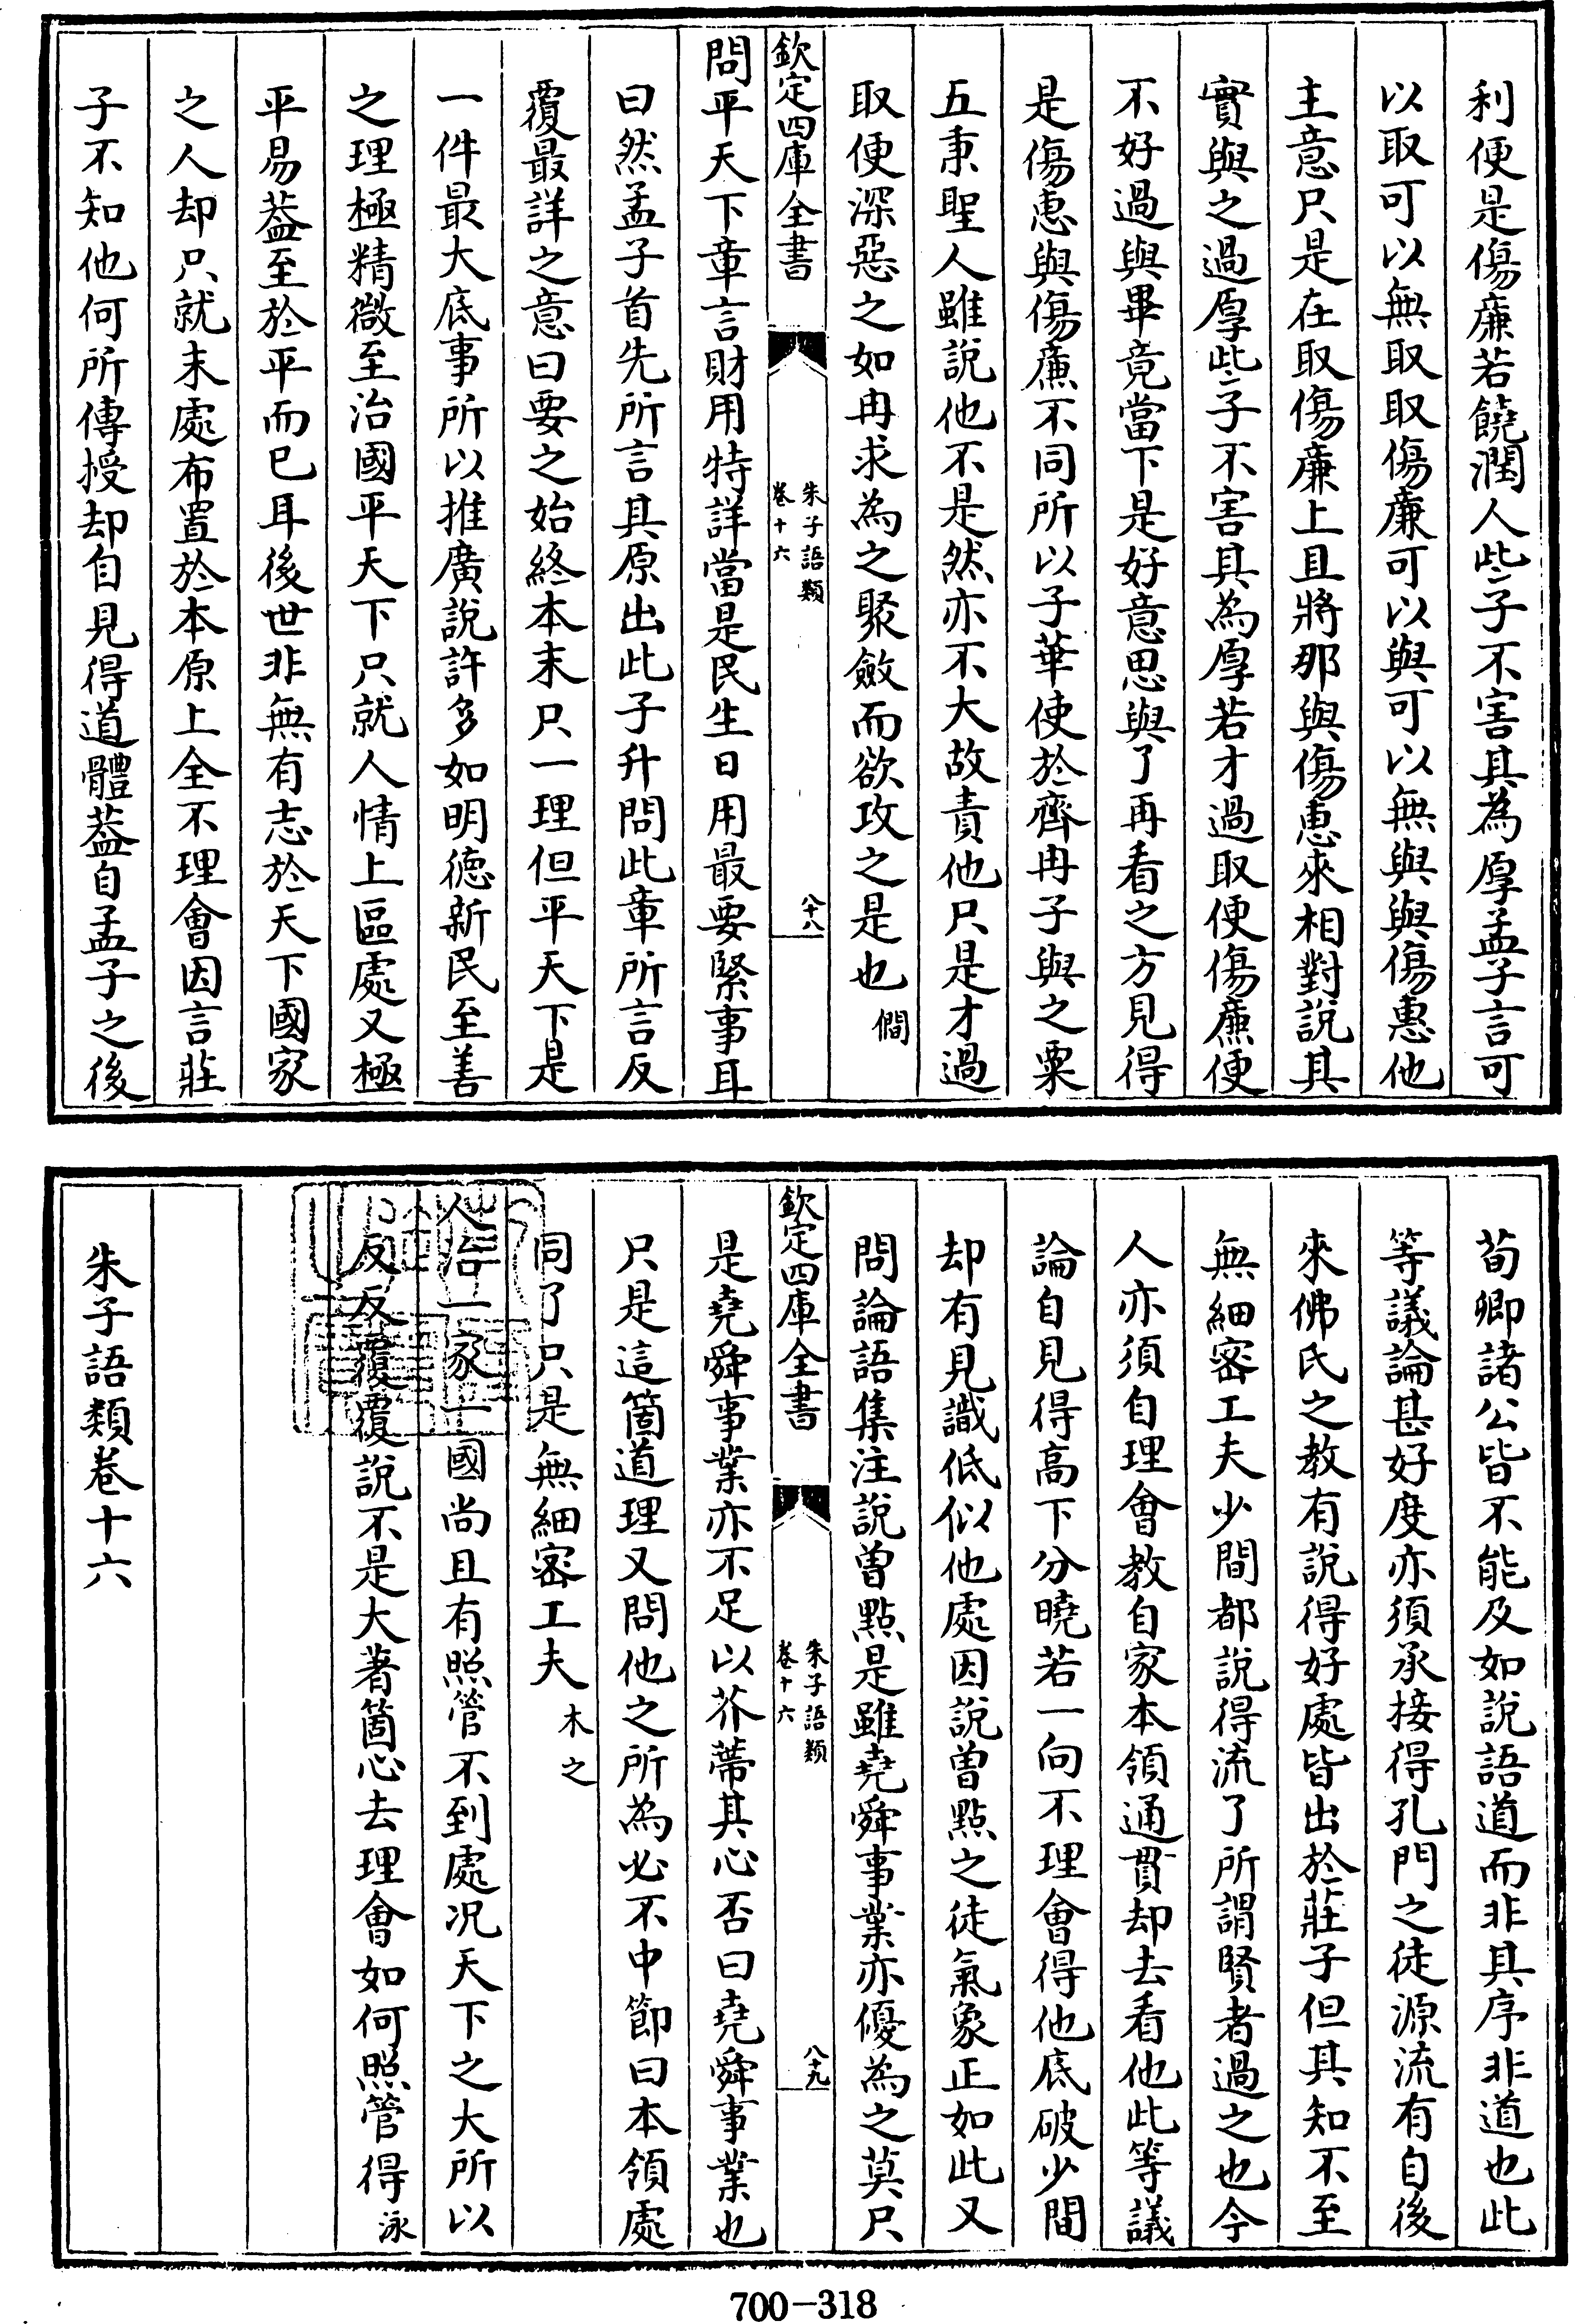 利便是傷廉若饒潤人些子不害其為厚孟子言可
以取可以無取取傷廉可以與可以無與與傷惠他
主意只是在取傷廉上且將那與傷惠來相對說其
實與之過厚些子不害其為厚若才過取便傷廉便
不好過與畢竟當下是好意思與了再看之方見得
是傷惠與傷廉不同所以子華使於齊冉子與之粟
五秉聖人雖說他不是然亦不大故責他只是才過
取便深惡之如冉求為之聚斂而欲攻之是也 僩
欽定四庫全書
朱子語類
卷十六
八十八
問平天下章言財用特詳當是民生日用最要緊事耳
曰然孟子首先所言其原出此子升問此章所言反
覆最詳之意曰要之始終本末只一理但平天下是
一件最大底事所以推廣說許多如明德新民至善
之理極精微至治國平天下只就人情上區處又極
平易葢至於平而已耳後世非無有志於天下國家
之人却只就末處布置於本原上全不理會因言莊
子不知他何所傳授却自見得道體葢自孟子之後
荀卿諸公皆不能及如說語道而非其序非道也此
等議論甚好度亦須承接得孔門之徒源流有自後
來佛氏之教有說得好處皆出於莊子但其知不至
無細密工夫少間都說得流了所謂賢者過之也今
人亦須自理會教自家本領通貫却去看他此等議
論自見得高下分曉若一向不理會得他底破少間
却有見識低似他處因說曾點之徒氣象正如此又
問論語集注說曾點是雖堯舜事業亦優為之莫只
欽定四庫全書
朱子語類
卷十六
八十九
是堯舜事業亦不足以芥蔕其心否曰堯舜事業也
只是這箇道理又問他之所為必不中節曰本領處
同了只是無細密工夫 木之
人治一家一國尚且有照管不到處况天下之大所以
反反覆覆說不是大著箇心去理會如何照管得 泳
朱子語類卷十六
700-318